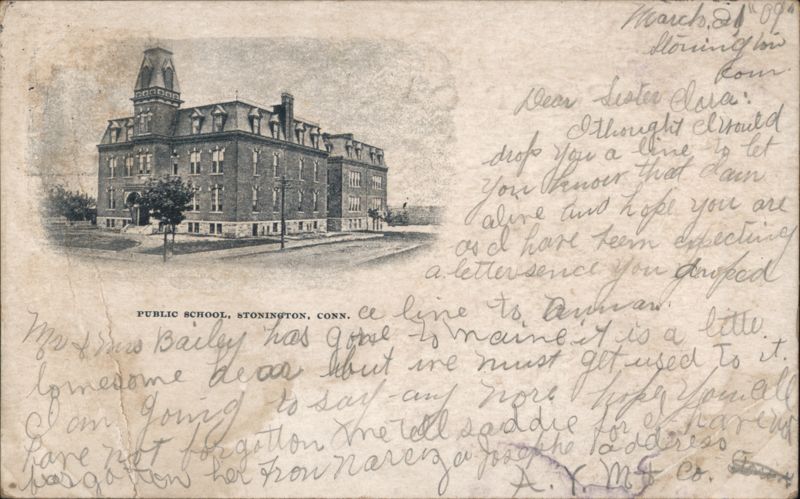 March. 21" 09"
Stonington
Conn.
Dear Sister Clara:
I thought I would
drop you a line to let
you know that I am
alive and hope you are
as I have been expecting
a letter sence you droped
PUBLIC SCHOOL, STONINGTON, CONN.
a line to
Mr & Mrs Bailey has gone to maine it is a little
lomesome dear but we must get used to it.
I am going to say any more hope you all
have not forgotton me tell saddie for I have not
forgotton her From Narciza Josephe address
A. Y. M & Co.